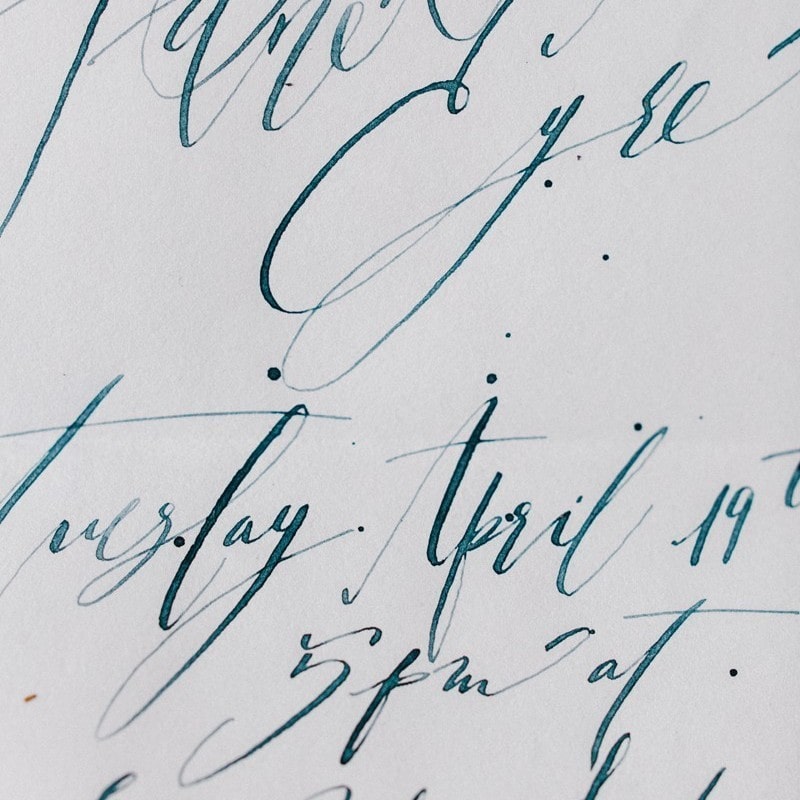 Eyre
Tuesday. April 19th
5pm at